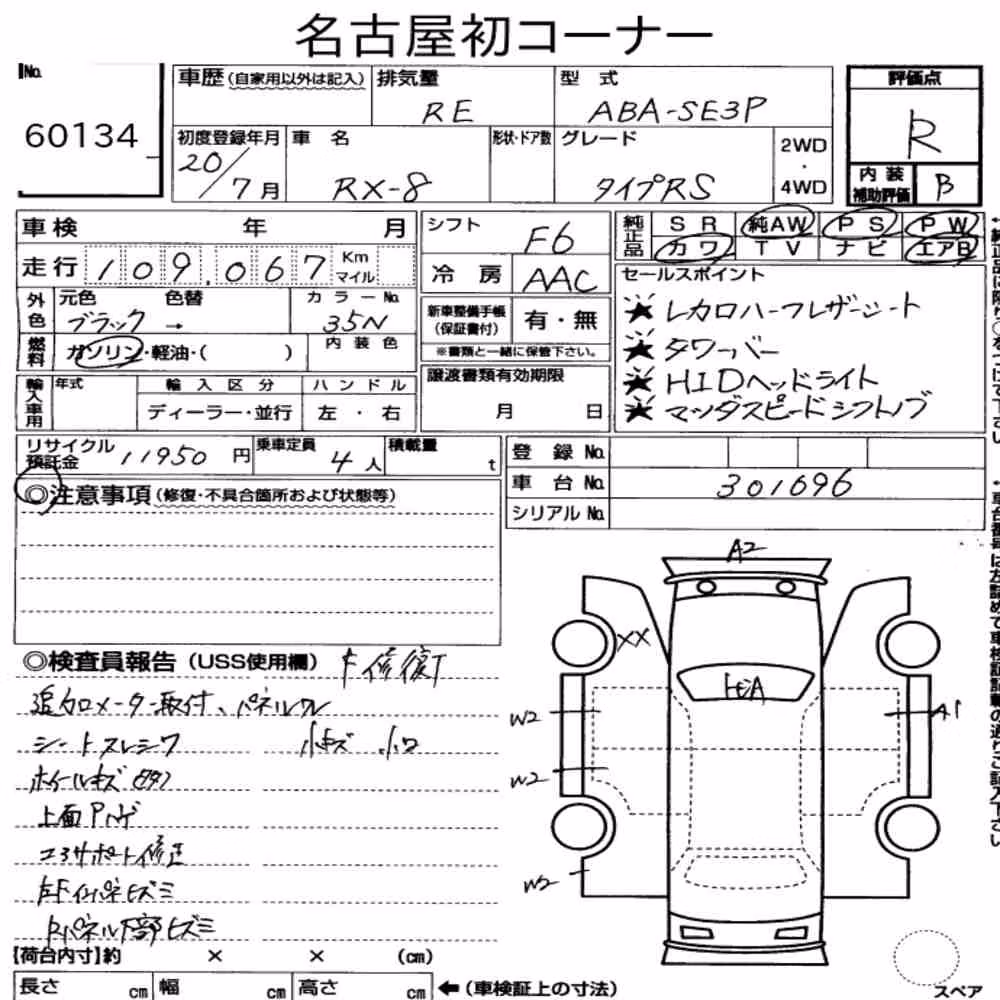 名古屋初コーナー
No.
60134
車歴(自家用以外は記入)
排気量
RE
型 式
ABA-SE3P
評価点
R
初度登録年月
20/7月
車 名
RX-8
形状・ドア数
グレード
タイプRS
2WD
・
4WD
内 装
補助評価
B
車検 年 月
走行 109,067 Km
マイル
外色
元色 色替
ブラック →
カラーNo.
35N
燃料
ガソリン・軽油・( )
内装色
輸入車用
年式
輸入区分
ディーラー・並行
ハンドル
左 ・ 右
シフト
F6
冷 房
AAC
新車整備手帳
(保証書付)
有・無
※書類と一緒に保管下さい。
譲渡書類有効期限
月 日
純正品
SR 純AW PS PW
カワ TV ナビ エアB
セールスポイント
★ レカロハーフレザーシート
★ タワーバー
★ HIDヘッドライト
★ マツダスピードシフトノブ
リサイクル
預託金
11950 円
乗車定員
4 人
積載量
t
登 録 No.
車 台 No.
301696
シリアル No.
◎注意事項(修復・不具合箇所および状態等)
◎検査員報告(USS使用欄) F修復T
追加メーター取付、パネルワレ
シートスレシワ 小キズ 小凹
ホイールキズ
上面Pハゲ
コアサポート修正
左Fインパネヒズミ
Rパネル下部ヒズミ
【荷台内寸】約 × × (cm)
長さ cm 幅 cm 高さ cm
←(車検証上の寸法)
A2
XX
W2
W2
W2
A1
スペア